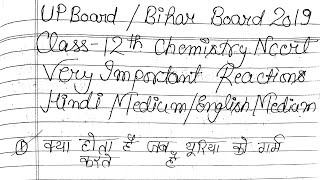 UP Board / Bihar Board 2019
Class-12th Chemistry Ncert
Very Important Reactions
Hindi Medium/English Medium
① क्या होता है जब यूरिया को गर्म
करते हैं